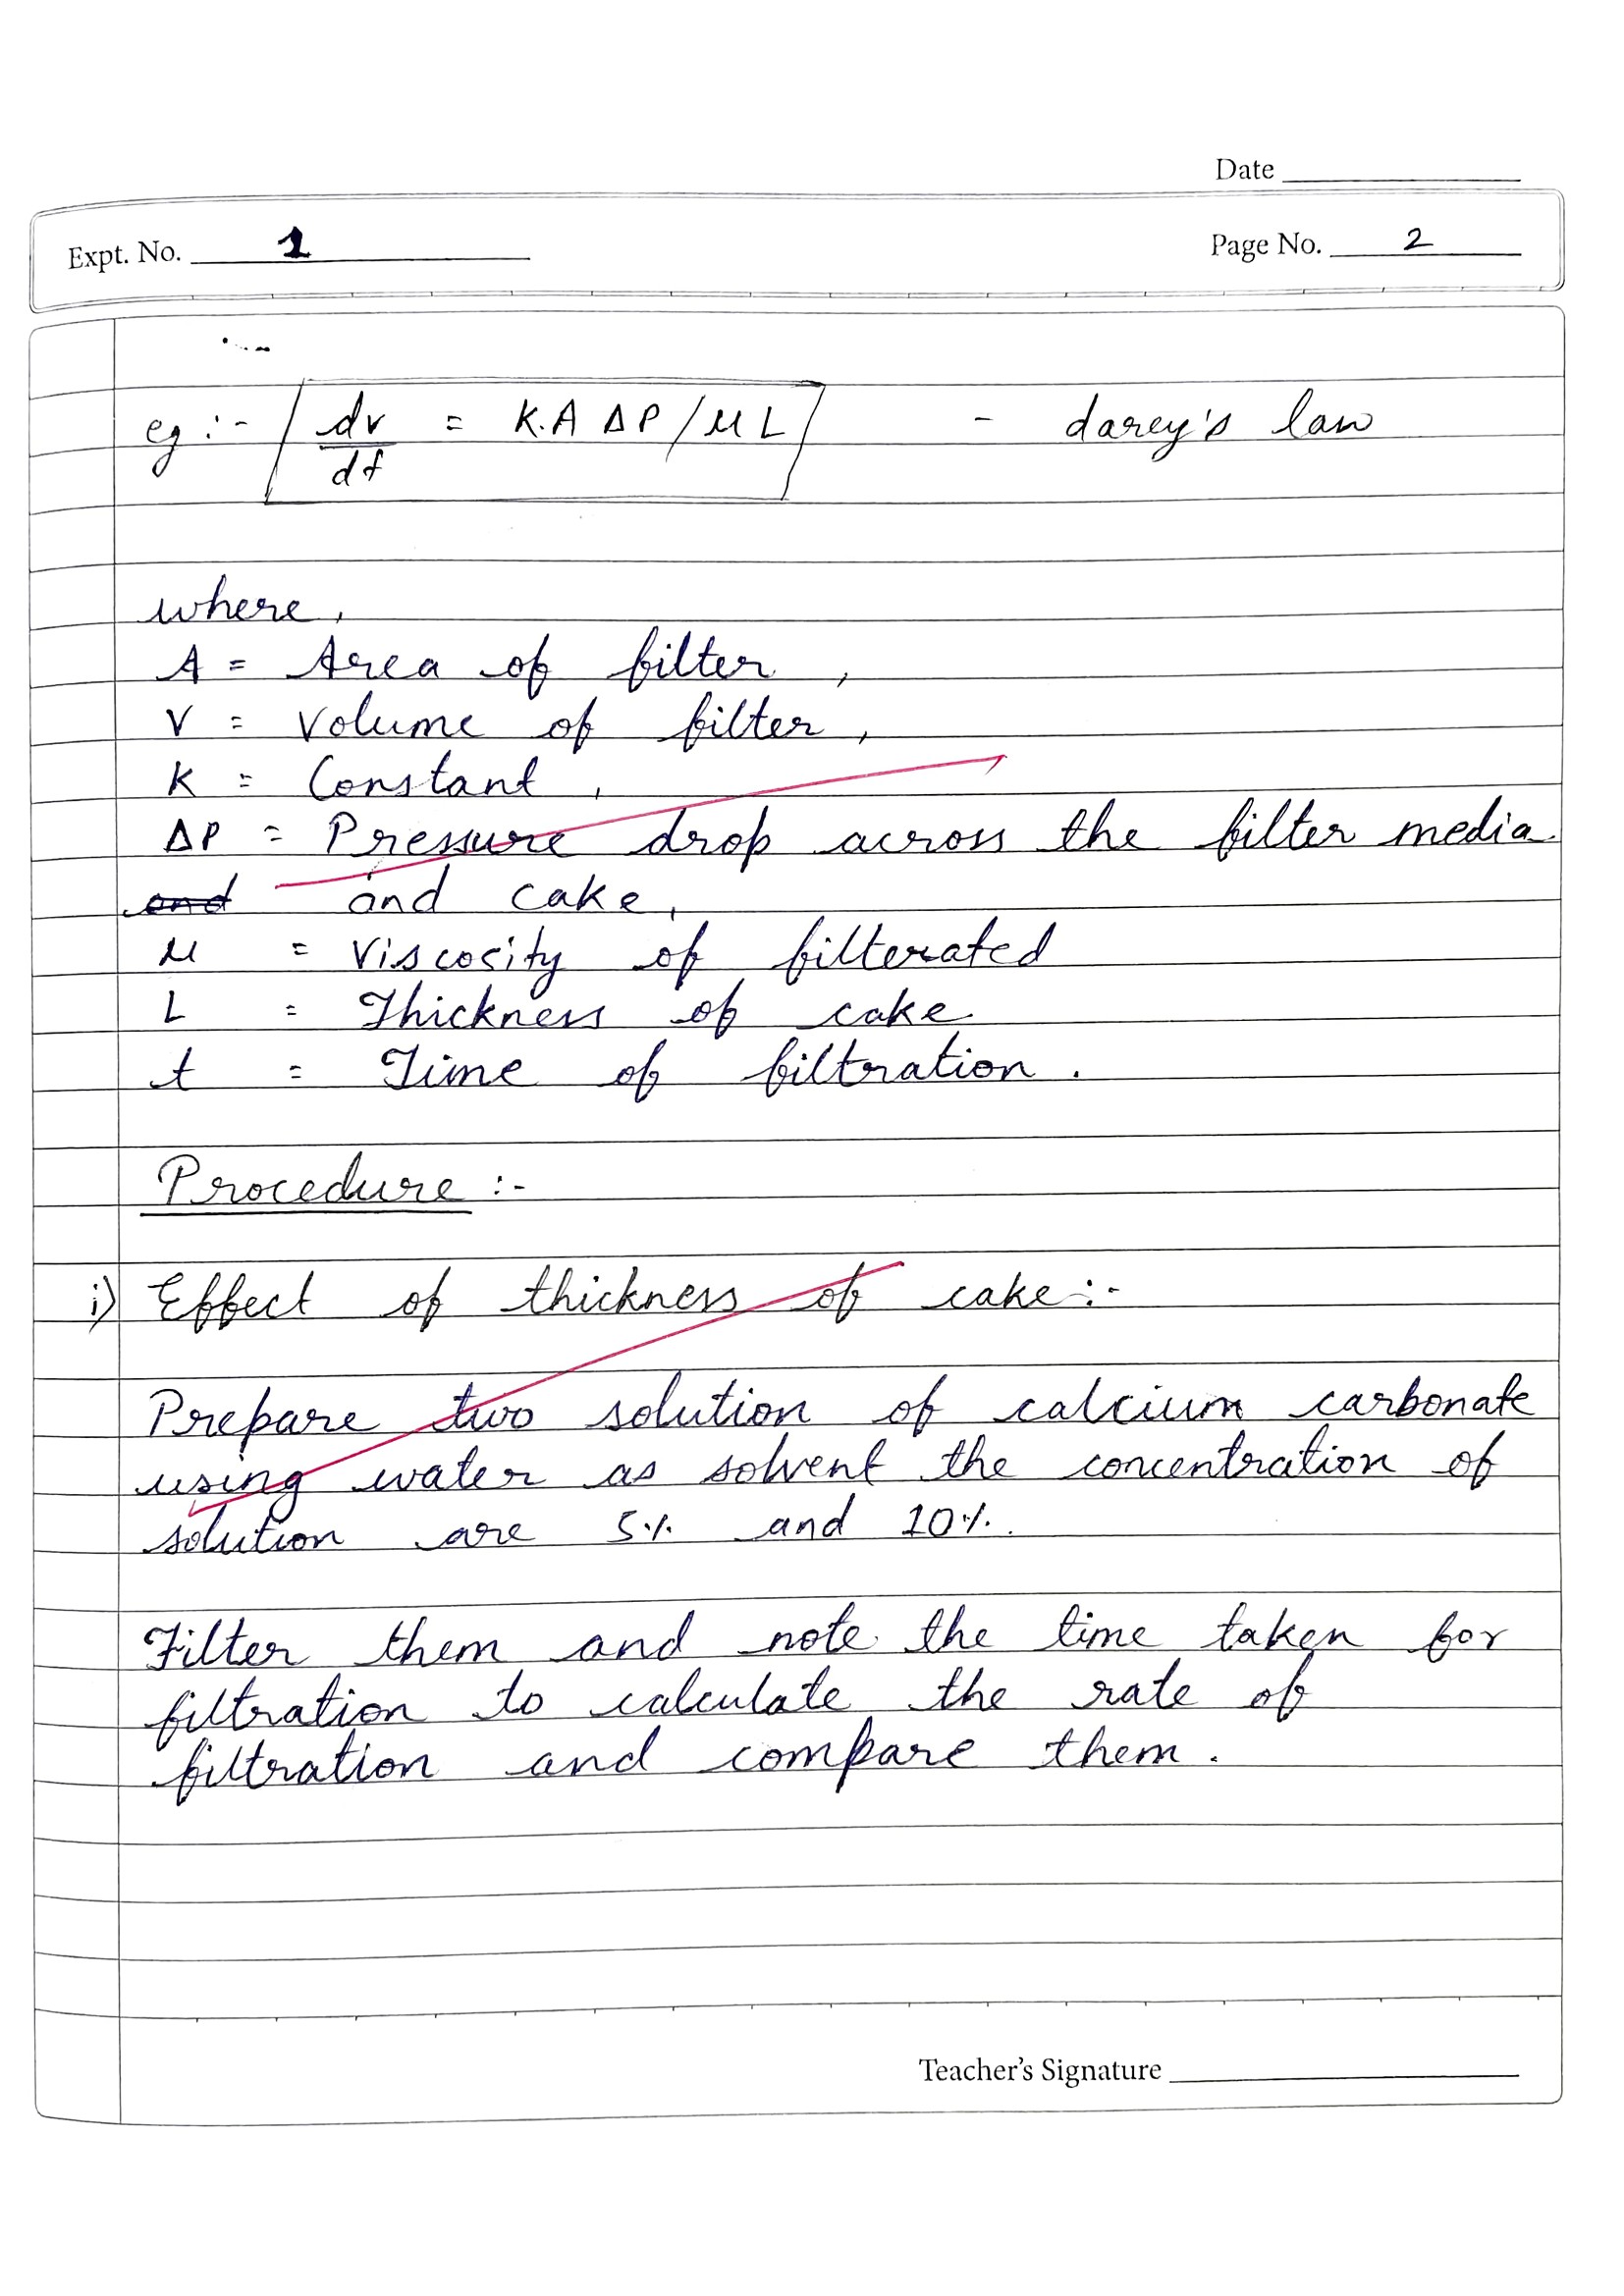 Date
Expt. No. 1
Page No. 2
eg :- dv/df = K.A ΔP/μL - darcy's law
where,
A = Area of filter,
V = Volume of filter,
K = Constant,
ΔP = Pressure drop across the filter media
and and cake,
μ = Viscosity of filterated
L = Thickness of cake
t = Time of filtration.
Procedure :-
i) Effect of thickness of cake :-
Prepare two solution of calcium carbonate
using water as solvent the concentration of
solution are 5% and 10%.
Filter them and note the time taken for
filtration to calculate the rate of
filtration and compare them.
Teacher's Signature